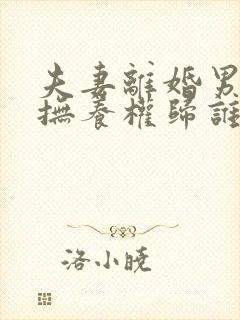 夫妻離婚男
撫養權歸誰
洛小曉